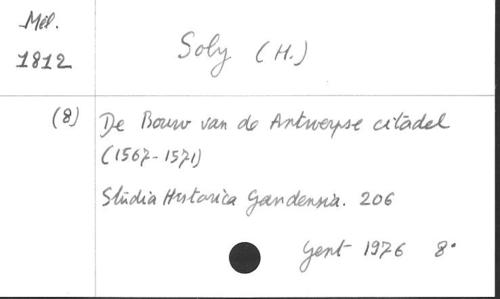 Mél.
1812
Soly (H.)
(8) De Bouw van de Antwerpse citadel
(1567-1571)
Studia Historica Gandensia. 206
Gent 1976 8°